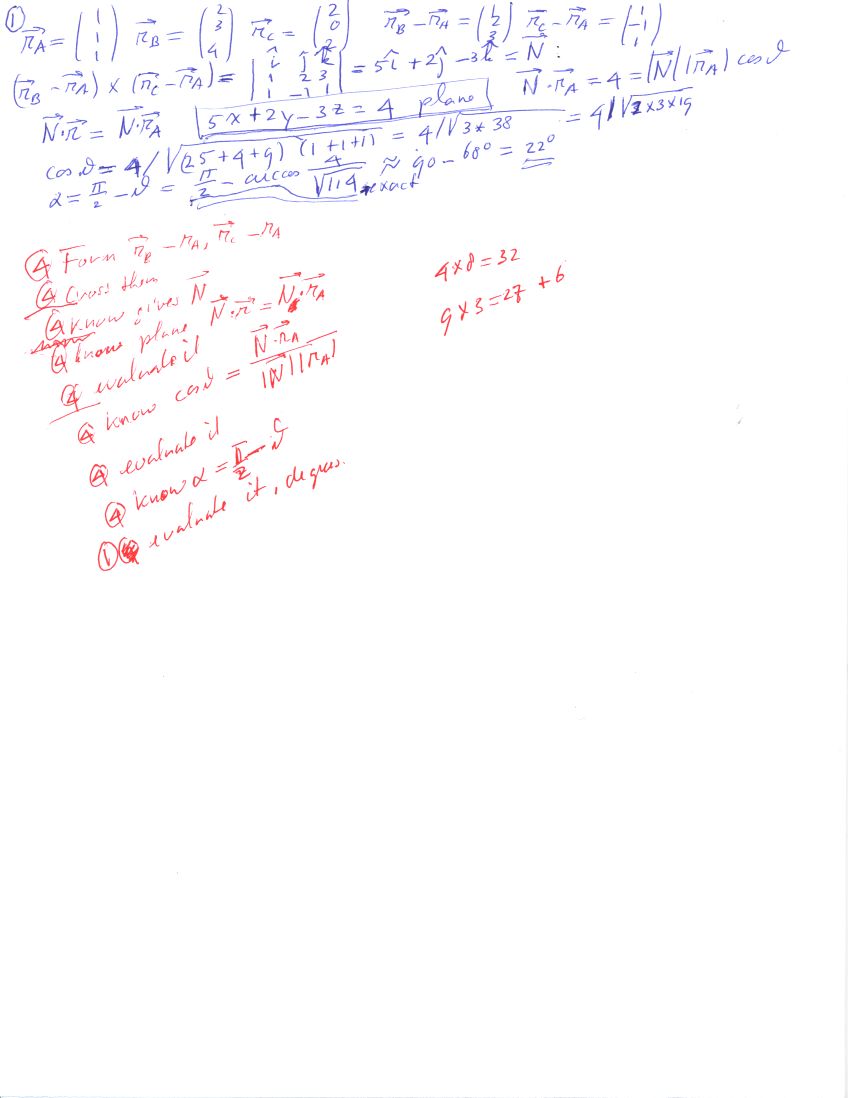 ① r⃗_A = (1 1 1) r⃗_B = (2 3 4) r⃗_C = (2 0 2) r⃗_B − r⃗_A = (1 2 3) r⃗_C − r⃗_A = (1 −1 1)
(r⃗_B − r⃗_A) × (r⃗_C − r⃗_A) = | î ĵ k̂ ; 1 2 3 ; 1 −1 1 | = 5î + 2ĵ − 3k̂ = N⃗ :
N⃗·r⃗ = N⃗·r⃗_A 5x + 2y − 3z = 4 plane N⃗·r⃗_A = 4 = |N⃗||r⃗_A| cos ϑ
cos ϑ = 4/√(25+4+9)(1+1+1) = 4/√3*38 = 4/√2×3×19
α = π/2 − ϑ = π/2 − arccos 4/√114 exact ≈ 90 − 68° = 22°
④ Form r⃗_B − r_A, r⃗_C − r_A
④ Cross them
④ know gives N⃗
④ know plane N⃗·r⃗ = N⃗·r⃗_A
④ evaluate it
④ know cos ϑ = N⃗·r⃗_A / |N⃗||r_A|
④ evaluate it
④ know α = π/2 − ϑ
① evaluate it, degrees.
4×8=32
9×3=27 +6